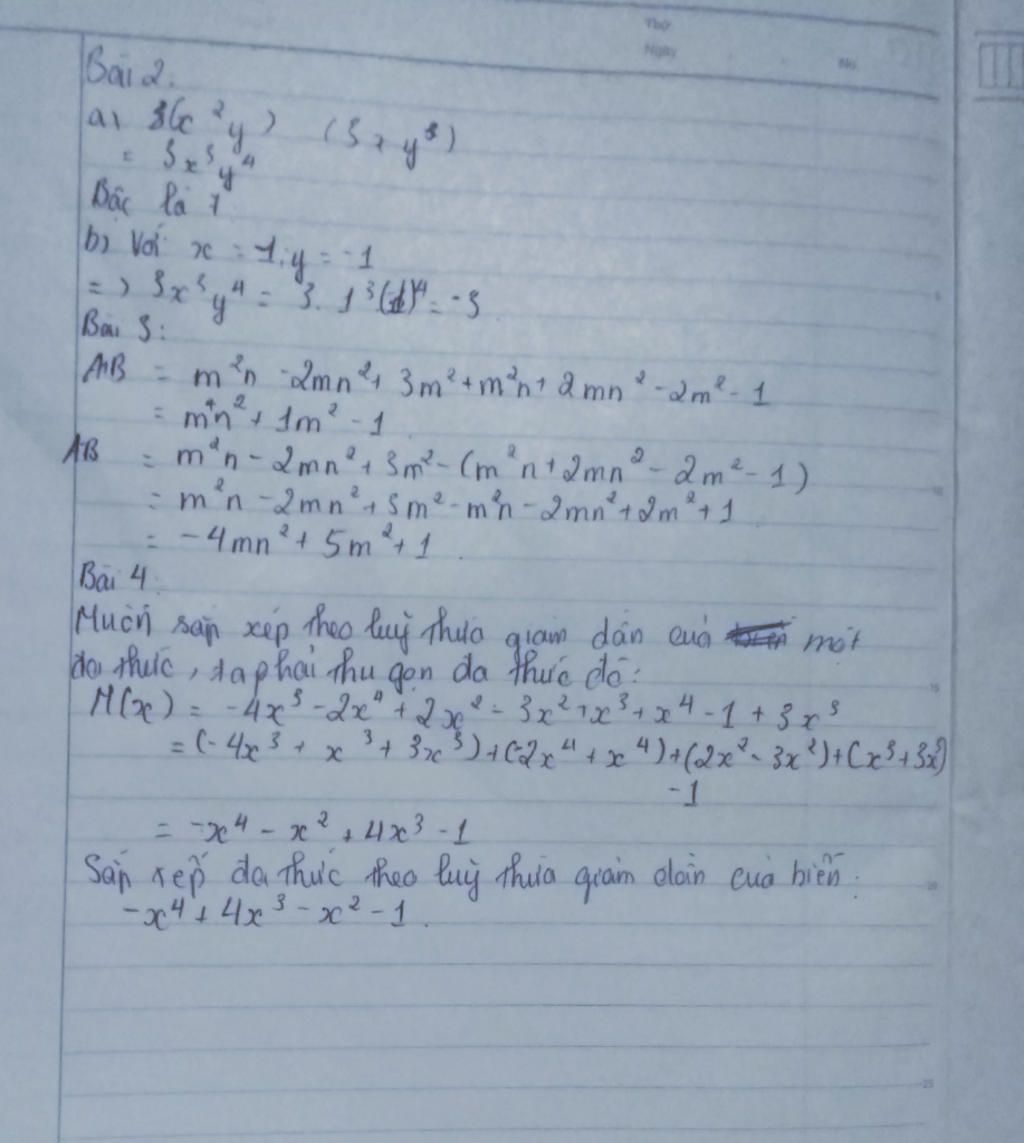 Thứ
Ngày
No.
Bài 2.
a) 3(x²y) (3xy³)
= 3x³y⁴
Bậc là 7
b) Với x = -1, y = -1
=> 3x³y⁴ = 3. 1³(-1)⁴ = -3
Bài 3:
A+B = m²n - 2mn² + 3m² + m²n + 2mn² - 2m² - 1
= m⁴n² + 1m² - 1
AB = m²n - 2mn² + 3m² - (m²n + 2mn² - 2m² - 1)
= m²n - 2mn² + 3m² - m²n - 2mn² + 2m² + 1
= -4mn² + 5m² + 1
Bài 4.
Muốn sắp xếp theo luỹ thừa giảm dần của một
đa thức, ta phải thu gọn đa thức đó:
M(x) = -4x³ - 2x⁴ + 2x² - 3x² + x³ + x⁴ - 1 + 3x³
= (-4x³ + x³ + 3x³) + (-2x⁴ + x⁴) + (2x² - 3x²) + (x³ + 3x³)
-1
= -x⁴ - x² + 4x³ - 1
Sắp xếp đa thức theo luỹ thừa giảm dần của biến:
-x⁴ + 4x³ - x² - 1.